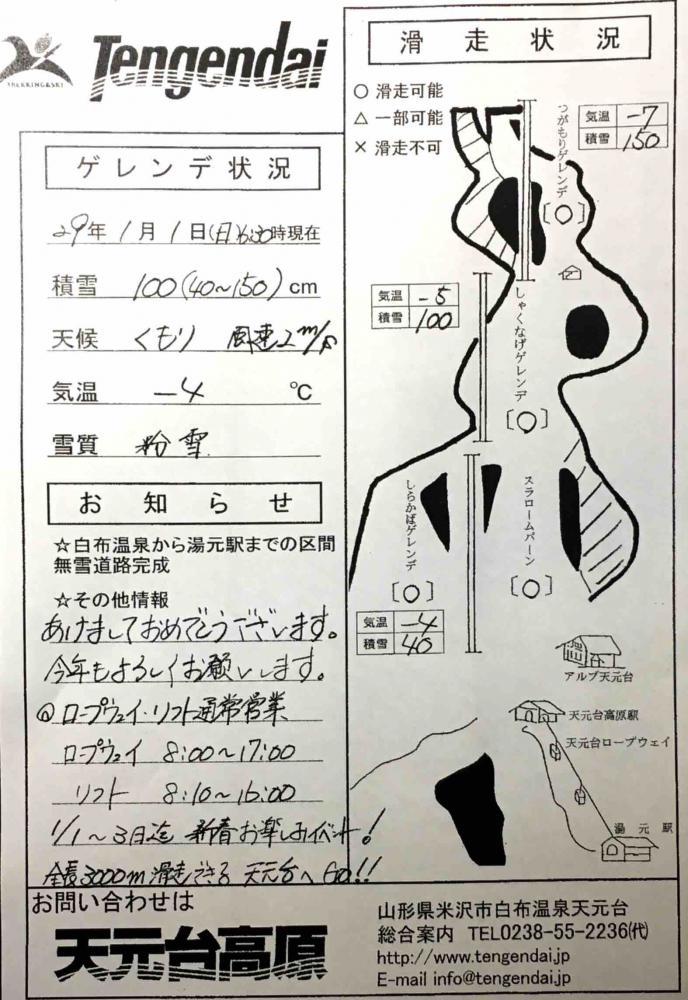 TREKKING&SKI
Tengendai
ゲレンデ状況
29年 1月 1日(日)6:30時現在
積雪 100(40～150)cm
天候 くもり 風速2m/s
気温 -4 ℃
雪質 粉雪
お知らせ
☆白布温泉から湯元駅までの区間
無雪道路完成
☆その他情報
あけましておめでとうございます。
今年もよろしくお願いします。
◎ロープウェイ・リフト通常営業
ロープウェイ 8:00～17:00
リフト 8:10～16:00
1/1～3日迄 新春お楽しみイベント!
全長3000m滑走できる 天元台へGO!!
滑走状況
○ 滑走可能
△ 一部可能
× 滑走不可
つがもりゲレンデ
[○]
気温 -7
積雪 150
気温 -5
積雪 100
しゃくなげゲレンデ
[○]
しらかばゲレンデ
[○]
スラロームバーン
[○]
気温 -4
積雪 40
アルブ天元台
天元台高原駅
天元台ロープウェイ
湯元駅
お問い合わせは
天元台高原
山形県米沢市白布温泉天元台
総合案内 TEL0238-55-2236(代)
http://www.tengendai.jp
E-mail info@tengendai.jp